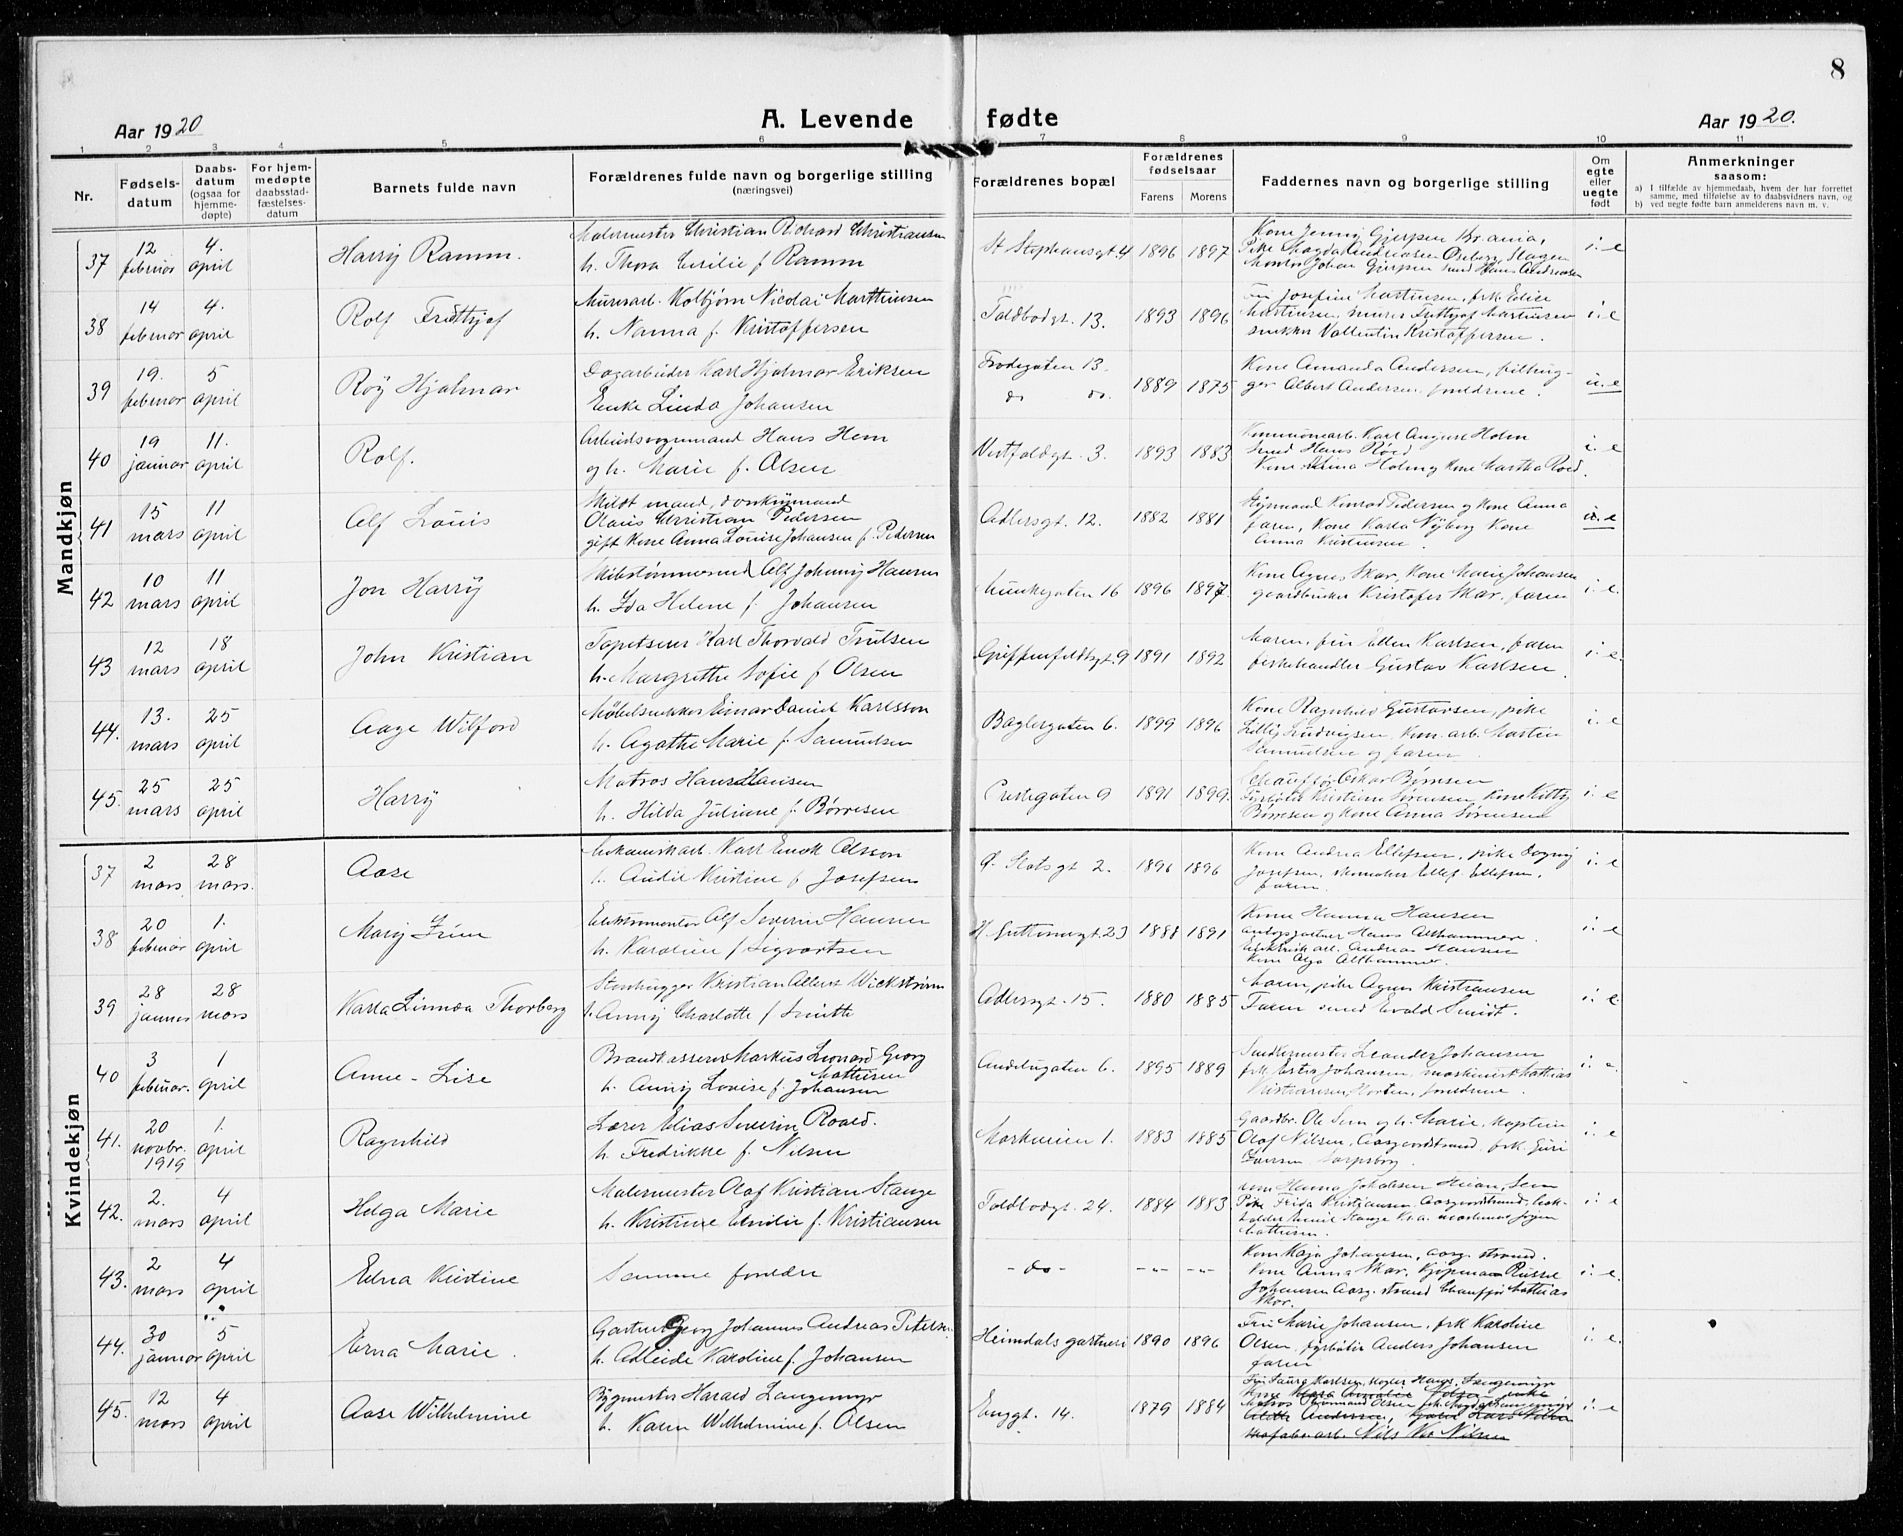 8
Aar 1920
A. Levende fødte
Aar 1920.
1 2 3 4 5 6 7 8 9 10 11
Nr.
Fødsels-
datum
Daabs-
datum
(ogsaa for
hjemme-
døpte)
For hjem-
medøpte
daabsstad-
fæstelses-
datum
Barnets fulde navn
Forældrenes fulde navn og borgerlige stilling
(næringsvei)
Forældrenes bopæl
Forældrenes
fødselsaar
Farens Morens
Faddernes navn og borgerlige stilling
Om
egte
eller
uegte
født
Anmerkninger
saasom:
a) I tilfælde av hjemmedaab, hvem der har forrettet
samme, med tilføielse av to daabsvidners navn, og
b) ved uegte fødte barn anmelderens navn m. v.
Mandkjøn
37 12 februar 4. april Harry Ramm.
Malermester Christian Richard Christiansen
h. Thora Cecilie f Ramm
St Stephansgt. 4 1896 1897
Kone Jenny Gjerpen Kr.ania,
Pike Magda Andreassen Oseberg, Slagen
Johan Gjerpen Hans Andreassen
i. e
38 14 februar 4. april Rolf Fritthjof
Murerarb. Kolbjørn Nicolai Marthinsen
h. Nanna f. Kristoffersen
Toldbodgt. 13. 1893 1896
Josefine Martinsen, frk. Edise
Martinsen, murer Fritjof Martinsen
snekker Vallentin Kristoffersen.
i. e
39 19. februar 5 april Roy Hjalmar
Dagarbeider Karl Hjalmar Eriksen
Enke Linda Johansen
Frodegaten 13.
do do. 1889 1875
Kone Amanda Andersen, filhug-
ger Albert Andersen. foreldrene.
u. e
40 19 januar 11. april Rolf.
Arbeidsvognmand Hans Hem
og h. Marie f. Olsen
Vestfoldgt. 3. 1893 1883
Kommunearb. Karl August Holm
Smed Hans Røed
Kone Holm og kone Martha Roed.
i. e
41 15 mars 11 april Alf Louis
Skildt mand, donkeymand
Olaus Christian Pedersen
gift kone Anna Louise Johansen f. Pedersen
Adlersgt. 12. 1882 1881
Styrmand Konrad Pedersen og kone Anna
faren, kone Karla Nyborg kone
Anna Kristensen.
u. e
42 10 mars 11 april Jon Harry
Skibstømmermd Alf Johnny Hansen
h. Ida Helene f. Johansen
Munkegaten 16 1896 1897
Kone Agnes Skar, kone Marie Johansen
gaardbruker Kristofer Skar, faren
i. e.
43 12 mars 18 april John Kristian
Tapetserer Karl Thorvald Trulsen
h. Margrethe Sofie f Olsen
Griffenfeldtsgt. 9 1891 1892
Moren, fru Ellen Karlsen, faren
fiskehandler Gustav Karlsen.
i. e.
44. 13. mars 25 april Aage Wilford
Møbelsnekker Einar Daniel Karlsson
h. Agathe Marie f. Samuelsen
Baglergaten 6. 1899 1896
Kone Ragnhild Gustavsen, pike
Lilly Ludvigsen, kom. arb. Martin
Samuelsen og faren.
i. e
45. 25 mars 25 april Harry
Matros Hans Hansen
h. Hilda Juliane f. Børresen
Prestegaten 9 1891 1899.
Chauffør Oskar Børresen
Fyrbøter Kristian Sørensen, kone Kitty
Børresen og kone Anna Sørensen
i. e
Kvindekjøn
37 2 mars 28 mars. Aase
Mekaniskarb. Karl Enok Olsson
h. Kristine f Josefsen
Ø. Slotsgt 2. 1896 1896
Kone Andrea Ellefsen, pike Dagny
Josefsen, Ellef Ellefsen,
faren.
i. e
38 20 februar 1. april Mary Irene
Elektromontør Alf Severin Hansen
h. Karoline f Sigvartsen
H Guttormsgt. 23 1888 1891
Kone Hanna Hansen
Hans Althammer.
Elektrikerarb. Andreas Hansen
kone Olga Althammer.
i. e
39 28 januar 28 mars Karla Linnéa Thorborg
Stenhugger Kristian Albert Wickstrøm
h. Anny Charlotte f Smith
Adlersgt. 15. 1880 1885
Moren, pike Agnes Kristiansen
Faren smed Evald Smidt.
i. e
40 3 februar. 1 april Anne-Lise
Brandkasserer Markus Leonard Georg
Mathisen
h. Anny Lovise f. Johansen
Andebugaten 6. 1895 1889
Snedkermester Leander Johansen
frk. Astra Johansen, maskinist Mathias
Kristiansen, Horten, foreldrene.
i. e.
41. 20 novbr. 1919 1. april Ragnhild
Lærer Elias Severin Roald.
h. Fredrikke f. Nilsen
Markveien 1. 1883 1885
Gaardbr. Ole Sem og h. Marie, kaptein
Olaf Nilsen, Aasgaardstrand, frk. Guri
Larsen Sarpsborg.
i. e
42. 2. mars 4 april Helga Marie
Malermester Olaf Kristian Stange
h. Kristine Emilie f. Kristiansen
Toldbodgt. 24. 1884 1883
Hanna Johansen Sem
Pike Frida Kristiansen, Aasgaardstrand, bok-
holder Emil Stange Kr.a. Jørgen
Mathisen.
i. e
43. 2 mars 4 april Edna Kristine
Samme foreldre
- do - - " - - " -
Kone Kaja Johansen, aasg. strand.
Kone Anna Skar. kjøpmann Russel
Johansen Aasg. strand Chauffør Mathias
Skar.
i. e.
44. 30 januar 5 april Erna Marie.
Gartner Georg Johannes Andreas Petersen
h. Adleide Karoline f. Johansen
Heimdals gartneri 1890 1896
Fru Marie Johansen, frk Karoline
Olsen, fyrbøter Anders Johansen
faren
i. e.
45. 12 mars 4 april Aase Wilhelmine
Bygmester Harald Langemyr
h. Karen Wilhelmine f. Olsen
Enggt. 14. 1879 1884
Fru Laura Karlsen, Hans Langemyr
Matros Olsen frk. Langemyr
i. e